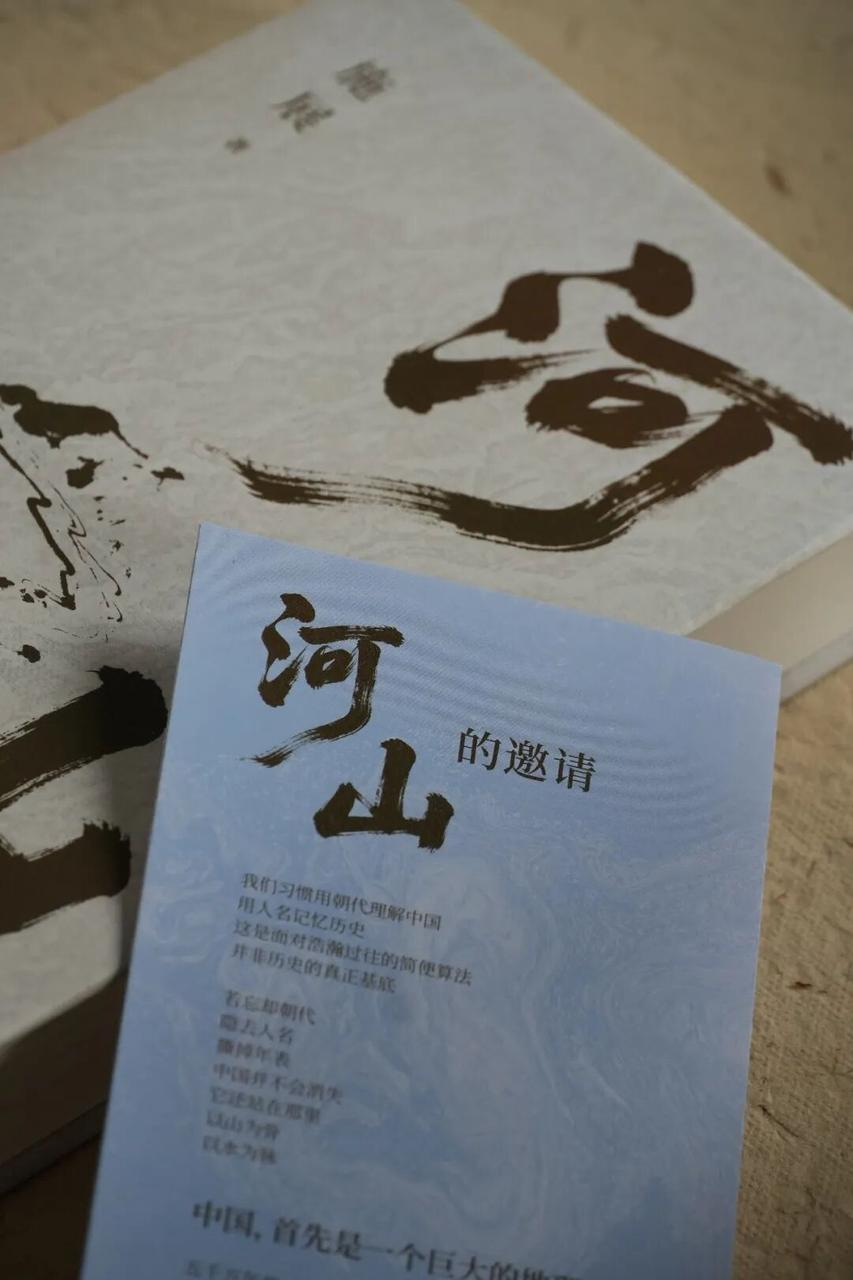 施展
著
河
河山
的邀请
我们习惯用朝代理解中国
用人名记忆历史
这是面对浩瀚过往的简便算法
并非历史的真正基底
若忘却朝代
隐去人名
撕掉年表
中国并不会消失
它还站在那里
以山为骨
以水为脉
中国，首先是一个巨大的地
五千五年